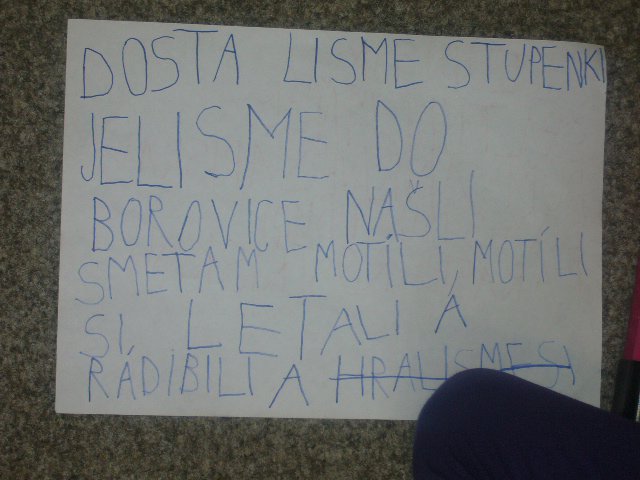 DOSTA LISME STUPENKI
JELISME DO
BOROVICE NAŠLI
SMETAM MOTÍLI, MOTÍLI
SI, LETALI A
RÁDIBILI A HRALISME SI